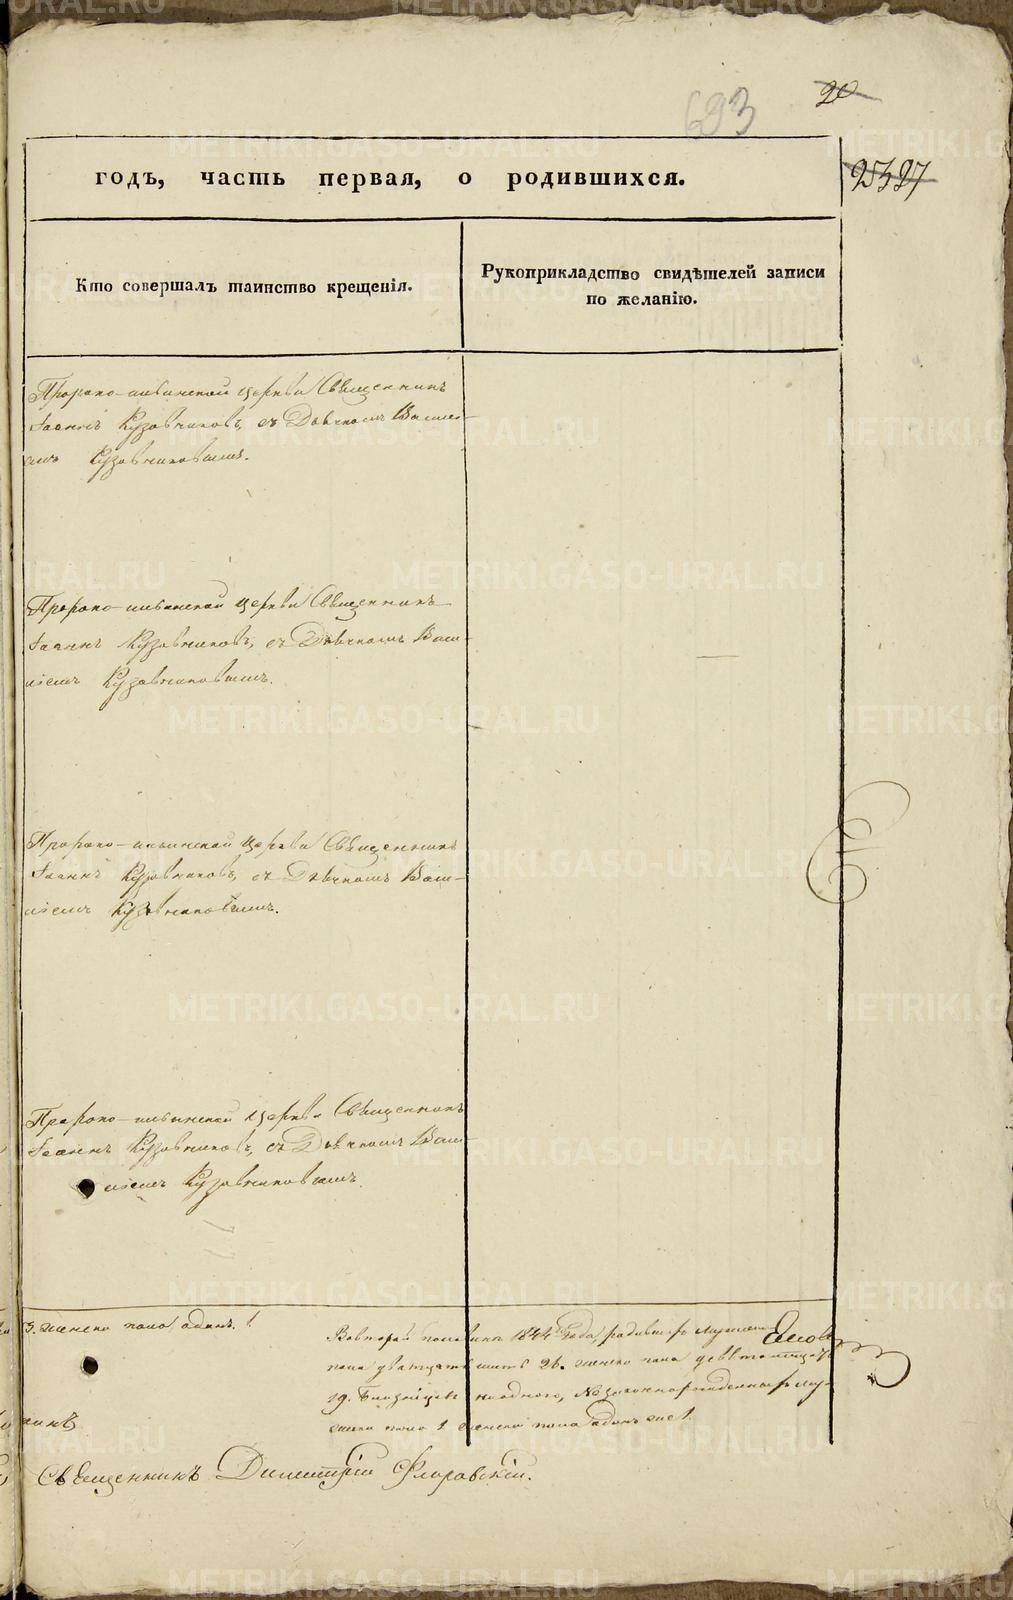 693
20
2527
годъ, часть первая, о родившихся.
Кто совершалъ таинство крещенія.
Рукоприкладство свидѣтелей записи
по желанію.
Пророко-ильинской церкви Священникъ
Іоаннъ Кузовниковъ, съ Дьячкомъ Васил-
емъ Кузовниковымъ.
Пророко-ильинской церкви Священникъ
Іоаннъ Кузовниковъ, съ Дьячкомъ Васи-
ліемъ Кузовниковымъ.
Пророко-ильинской церкви Священникъ
Іоаннъ Кузовниковъ, съ Дьячкомъ Васи-
ліемъ Кузовниковымъ.
Пророко-ильинской церкви Священникъ
Іоаннъ Кузовниковъ, съ Дьячкомъ Васи-
ліемъ Кузовниковымъ.
3. женска пола, одинъ. 1.
Вовторой половинѣ 1844 года, родивш мужеска
пола двадцать шесть 26. женска пола девятнадцать
19. Близнецовъ ни одного, Незаконнорожденны му-
жеска пола 1 женска пола одинъ 1.
Священникъ Димитрій Флоровскій.
METRIKI.GASO-URAL.RU